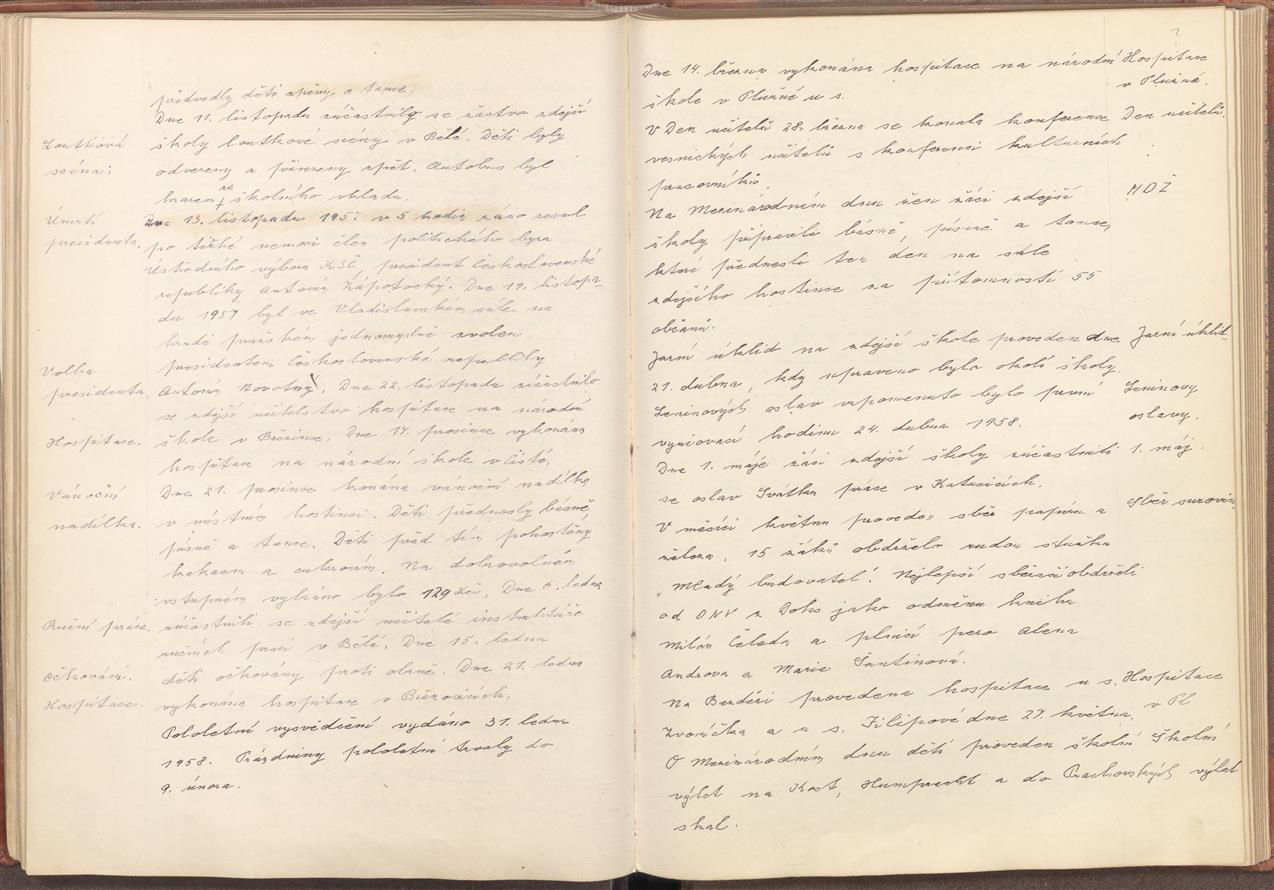 předvedly děti zpěvy a tance.
Dne 11. listopadu zúčastnilo se žactvo zdejší
Loutková školy loutkové scény v Bělé. Děti byly
scéna: odvezeny a přivezeny zpět. Autobus byl
hrazen ze školního vkladu.
Úmrtí Dne 13. listopadu 1957 v 5 hodin ráno zesnul
presidenta. po těžké nemoci člen politického byra
Ústředního výboru KSČ, president Československé
republiky Antonín Zápotocký. Dne 19. listopa-
du 1957 byl ve Vladislavském sále na
hradě pražském jednomyslně zvolen
Volba presidentem Československé republiky
presidenta. Antonín Novotný. Dne 22. listopadu zúčastnilo
se zdejší učitelstvo hospitace na národní
Hospitace. škole v Březince. Dne 17. prosince vykonána
hospitace na národní škole v Jisté.
Vánoční Dne 21. prosince konána vánoční nadílka
nadílka. v místním hostinci. Děti přednesly básně,
písně a tance. Děti před tím pohoštěny
kakaem a cukrovím. Na dobrovolném
vstupném vybráno bylo 129 Kčs. Dne 6. ledna
Ruční práce. zúčastnili se zdejší učitelé instruktáže
ručních prací v Bělé. Dne 15. ledna
Očkování. děti očkovány proti obrně. Dne 21. ledna
Hospitace. vykonána hospitace v Březovicích.
Pololetní vysvědčení vydáno 31. ledna
1958. Prázdniny pololetní trvaly do
9. února.
Dne 14. března vykonána hospitace na národní Hospitace
škole v Plužné u s. v Plužné.
V Den učitelů 28. března se konala konference Den učitelů.
vesnických učitelů s konferencí kulturních
pracovníků.
Na Mezinárodním dnu žen žáci zdejší MDŽ
školy připravili básně, písně a tance,
které přednesli ten den na sále
zdejšího hostince za přítomnosti 55
občanů.
Jarní úklid na zdejší škole proveden dne Jarní úklid
21. dubna, kdy upraveno bylo okolí školy.
Leninových oslav vzpomenuto bylo první Leninovy
vyučovací hodinu 24. dubna 1958. oslavy.
Dne 1. máje žáci zdejší školy zúčastnili 1. máj.
se oslav Svátku práce v Katusicích.
V měsíci květnu proveden sběr papíru a Sběr surovin.
železa. 15 žáků obdrželo rudou stužku
"Mladý budovatel". Nejlepší sběrači obdrželi
od ONV z Doks jako odměnu knihu
Milan Čeleda a plnící pero Alena
Androva a Marie Šantínová.
Na Bezdězi provedena hospitace u s. Hospitace
Zvoníčka a u s. Filipové dne 27. května. v Pl
O Mezinárodním dnu dětí proveden školní Školní
výlet na Kost, Humprecht a do Prachovských výlet
skal.